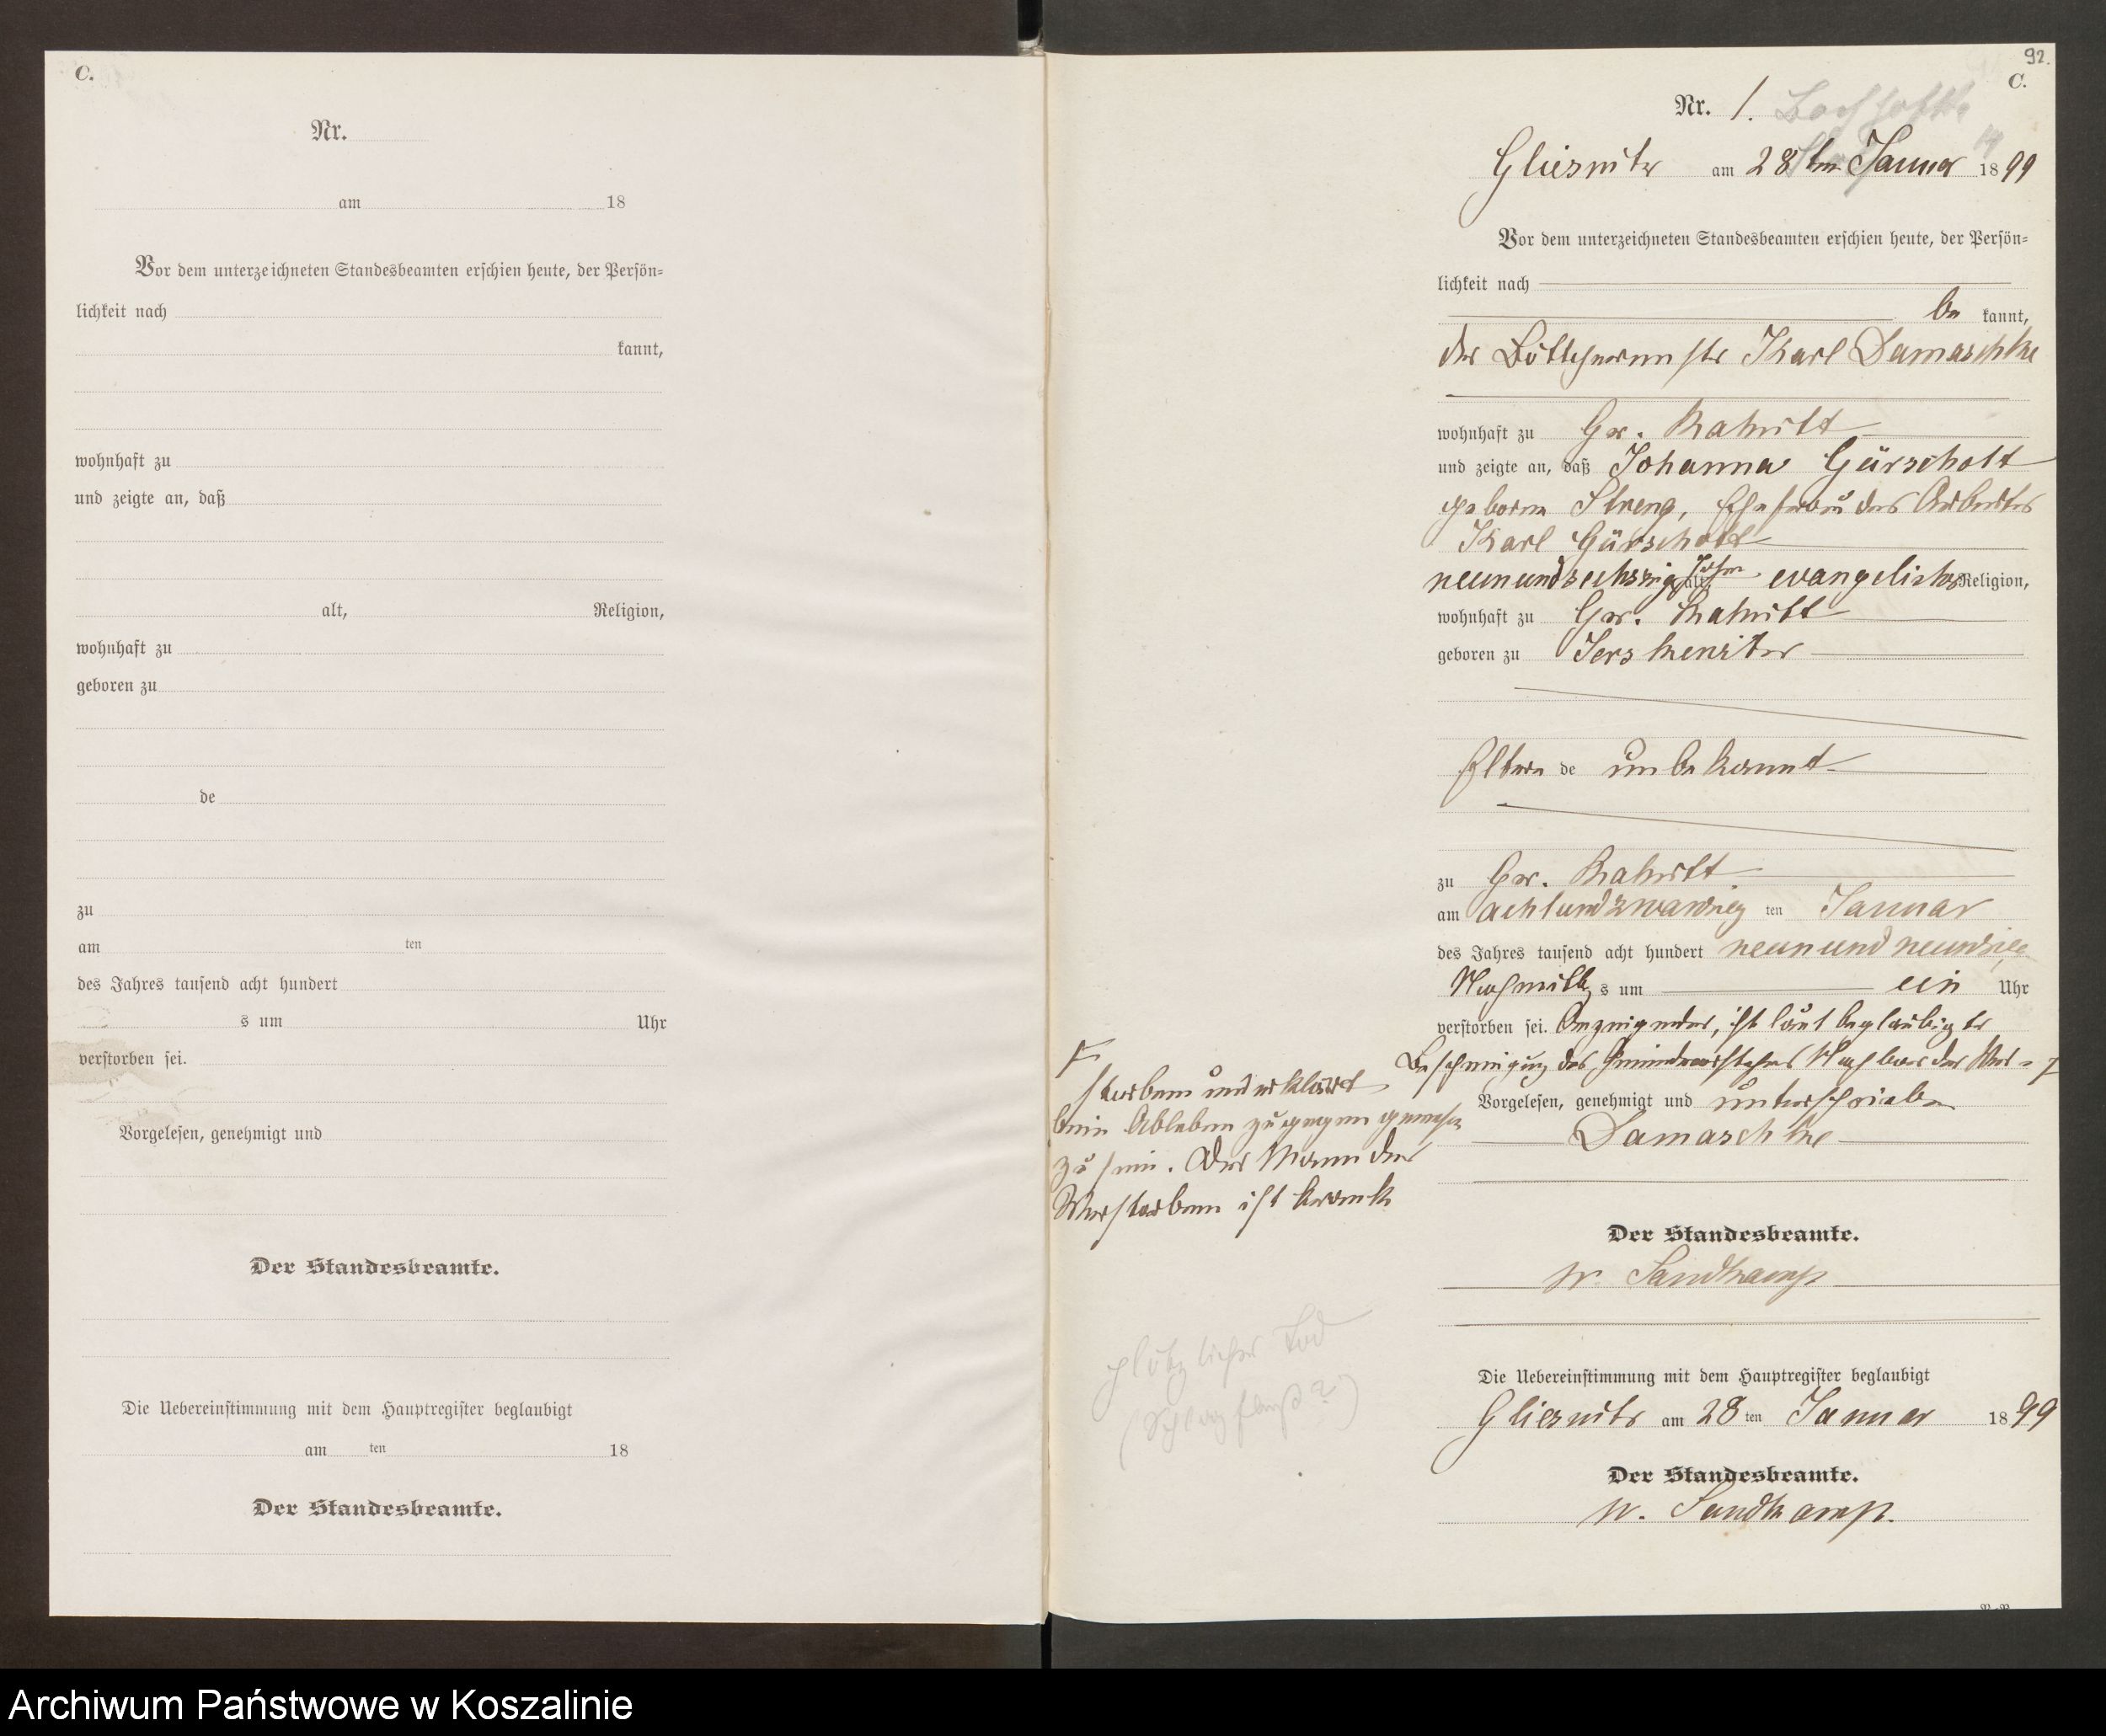 C.
Nr.
am 18
Vor dem unterzeichneten Standesbeamten erschien heute, der Persön-
lichkeit nach
kannt,
wohnhaft zu
und zeigte an, daß
alt, Religion,
wohnhaft zu
geboren zu
de
zu
am ten
des Jahres tausend acht hundert
s um Uhr
verstorben sei.
Vorgelesen, genehmigt und
Der Standesbeamte.
Die Uebereinstimmung mit dem Hauptregister beglaubigt
am ten 18
Der Standesbeamte.
92.
C.
Nr. 1.
Gliesnitz am 28ten Januar 1899
Vor dem unterzeichneten Standesbeamten erschien heute, der Persön-
lichkeit nach
be kannt,
der Karl Damaschke
wohnhaft zu Gr.
und zeigte an, daß Johanna Gürscholt
geborne Streng, Ehefrau des Arbeiters
Karl Gürscholt
neunundsechszig Jahre alt, evangelischer Religion,
wohnhaft zu Gr.
geboren zu Jerskewitz
Eltern de unbekannt
zu Gr.
am achtundzwanzig ten Januar
des Jahres tausend acht hundert neunundneunzig
Nachmittag s um ein Uhr
verstorben sei. Anzeigender, ist laut beglaubigter
Bescheinigung des Gemeindevorstehers Nachbar der Ver-
Vorgelesen, genehmigt und unterschrieben
Damaschke
Der Standesbeamte.
W. Sandkamp
Die Uebereinstimmung mit dem Hauptregister beglaubigt
Gliesnitz am 28 ten Januar 1899
Der Standesbeamte.
W. Sandkamp.
storbenen und erklärt
beim Ableben zugegen gewesen
zu sein. Der Mann der
Verstorbenen ist krank
plötzlicher Tod
(Schlagfluß?)
Archiwum Państwowe w Koszalinie